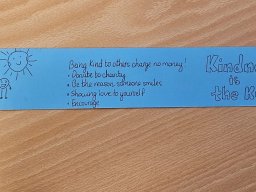 Being kind to others charge no money!
• Donate to charity
• Be the reason someone smiles
• Showing love to yourself
• Encourage
Kindn
is
the K